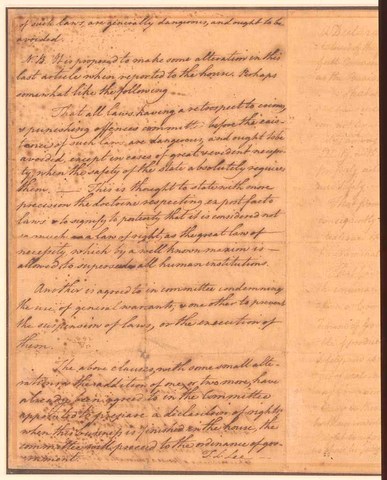 of such laws, are generally dangerous, and ought to be
avoided.
N.B. It is proposed to make some alteration in this
last article when reported to the house. Perhaps
somewhat like the following —
That all laws having a retrospect to crimes,
& punishing offences committed before the exis-
tence of such laws, are dangerous, and ought to be
avoided, except in cases of great & evident necessi-
ty, when the safety of the state absolutely requires
them. — This is thought to state with more
precision the doctrine respecting ex post facto
laws & to signify to posterity that it is considered not
so much as a law of right, as the great law of
necessity, which by a well known maxim is —
allowed to supersede all human institutions.
Another is agreed to in committee condemning
the use of general warrants; & one other to prevent
the suspension of laws, or the execution of
them.
The above clauses, with some small alte-
rations, & the addition of one, or two more, have
already been agreed to in the Committee
appointed to prepare a declaration of rights;
when this business is finished in the house, the
committee will proceed to the ordinance of gov-
ernment.
T. L. Lee